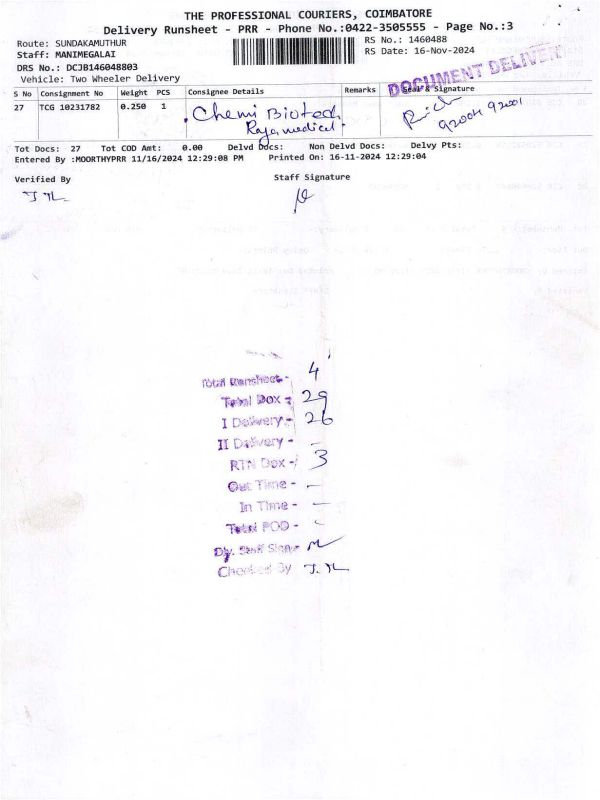 THE PROFESSIONAL COURIERS, COIMBATORE
Delivery Runsheet - PRR - Phone No.:0422-3505555 - Page No.:3
Route: SUNDAKAMUTHUR
RS No.: 1460488
Staff: MANIMEGALAI
RS Date: 16-Nov-2024
DRS No.: DCJB146048803
Vehicle: Two Wheeler Delivery
DOCUMENT DELIVER
S No Consignment No Weight PCS Consignee Details Remarks Seal & Signature
27 TCG 10231782 0.250 1 Chemi Biotech
Raja medical
Tot Docs: 27 Tot COD Amt: 0.00 Delvd Docs: Non Delvd Docs: Delvy Pts:
Entered By :MOORTHYPRR 11/16/2024 12:29:08 PM Printed On: 16-11-2024 12:29:04
Verified By Staff Signature
Total Runsheet - 4
Total Dox - 29
I Delivery - 26
II Delivery - -
RTN Dox - 3
Out Time - -
In Time - -
Total POD -
Dly. Staff Sign -
Checked By